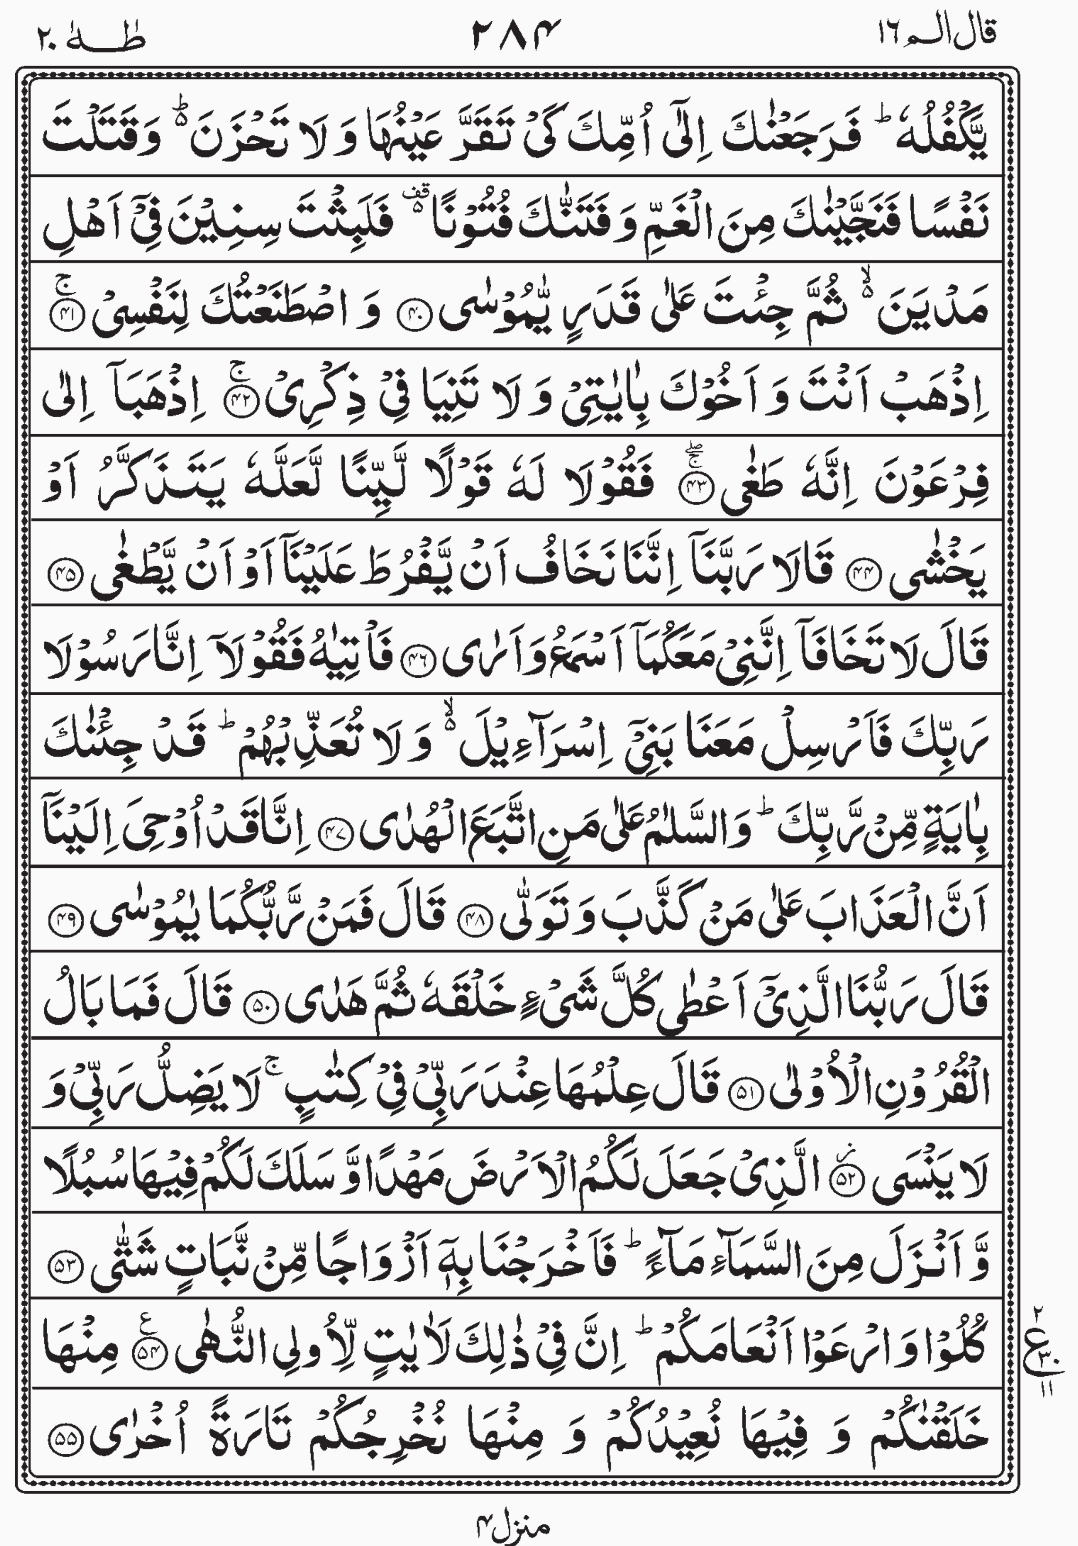 قال الم ١٦
٢٨٤
طٰهٰ ٢٠
يَّكۡفُلُهٗ ؕ فَرَجَعۡنٰكَ اِلٰٓى اُمِّكَ كَىۡ تَقَرَّ عَيۡنُهَا وَ لَا تَحۡزَنَ ؕ۬ وَقَتَلۡتَ
نَفۡسًا فَنَجَّيۡنٰكَ مِنَ الۡغَمِّ وَ فَتَنّٰكَ فُتُوۡنًا ۥ قف فَلَبِثۡتَ سِنِيۡنَ فِىۡۤ اَهۡلِ
مَدۡيَنَ ۙ۬ ثُمَّ جِئۡتَ عَلٰى قَدَرٍ يّٰمُوۡسٰى ﴿۴۰﴾ وَ اصۡطَنَعۡتُكَ لِنَفۡسِىۡ ۚ﴿۴۱﴾
اِذۡهَبۡ اَنۡتَ وَ اَخُوۡكَ بِاٰيٰتِىۡ وَ لَا تَنِيَا فِىۡ ذِكۡرِىۡ ۚ﴿۴۲﴾ اِذۡهَبَاۤ اِلٰى
فِرۡعَوۡنَ اِنَّهٗ طَغٰى ۚۖ﴿۴۳﴾ فَقُوۡلَا لَهٗ قَوۡلًا لَّيِّنًا لَّعَلَّهٗ يَتَذَكَّرُ اَوۡ
يَخۡشٰى ﴿۴۴﴾ قَالَا رَبَّنَاۤ اِنَّنَا نَخَافُ اَنۡ يَّفۡرُطَ عَلَيۡنَاۤ اَوۡ اَنۡ يَّطۡغٰى ﴿۴۵﴾
قَالَ لَا تَخَافَاۤ اِنَّنِىۡ مَعَكُمَاۤ اَسۡمَعُ وَ اَرٰى ﴿۴۶﴾ فَاۡتِيٰهُ فَقُوۡلَاۤ اِنَّا رَسُوۡلَا
رَبِّكَ فَاَرۡسِلۡ مَعَنَا بَنِىۡۤ اِسۡرَآءِيۡلَ ۙ۬ وَ لَا تُعَذِّبۡهُمۡ ؕ قَدۡ جِئۡنٰكَ
بِاٰيَةٍ مِّنۡ رَّبِّكَ ؕ وَ السَّلٰمُ عَلٰى مَنِ اتَّبَعَ الۡهُدٰى ﴿۴۷﴾ اِنَّا قَدۡ اُوۡحِىَ اِلَيۡنَاۤ
اَنَّ الۡعَذَابَ عَلٰى مَنۡ كَذَّبَ وَ تَوَلّٰى ﴿۴۸﴾ قَالَ فَمَنۡ رَّبُّكُمَا يٰمُوۡسٰى ﴿۴۹﴾
قَالَ رَبُّنَا الَّذِىۡۤ اَعۡطٰى كُلَّ شَىۡءٍ خَلۡقَهٗ ثُمَّ هَدٰى ﴿۵۰﴾ قَالَ فَمَا بَالُ
الۡقُرُوۡنِ الۡاُوۡلٰى ﴿۵۱﴾ قَالَ عِلۡمُهَا عِنۡدَ رَبِّىۡ فِىۡ كِتٰبٍ ۚ لَا يَضِلُّ رَبِّىۡ وَ
لَا يَنۡسَى ۫﴿۵۲﴾ الَّذِىۡ جَعَلَ لَكُمُ الۡاَرۡضَ مَهۡدًا وَّ سَلَكَ لَكُمۡ فِيۡهَا سُبُلًا
وَّ اَنۡزَلَ مِنَ السَّمَآءِ مَآءً ؕ فَاَخۡرَجۡنَا بِهٖۤ اَزۡوَاجًا مِّنۡ نَّبَاتٍ شَتّٰى ﴿۵۳﴾
كُلُوۡا وَ ارۡعَوۡا اَنۡعَامَكُمۡ ؕ اِنَّ فِىۡ ذٰلِكَ لَاٰيٰتٍ لِّاُولِى النُّهٰى ﴿۵۴﴾ ع مِنۡهَا
٢ ع ٣٠ ١١
خَلَقۡنٰكُمۡ وَ فِيۡهَا نُعِيۡدُكُمۡ وَ مِنۡهَا نُخۡرِجُكُمۡ تَارَةً اُخۡرٰى ﴿۵۵﴾
منزل ۴